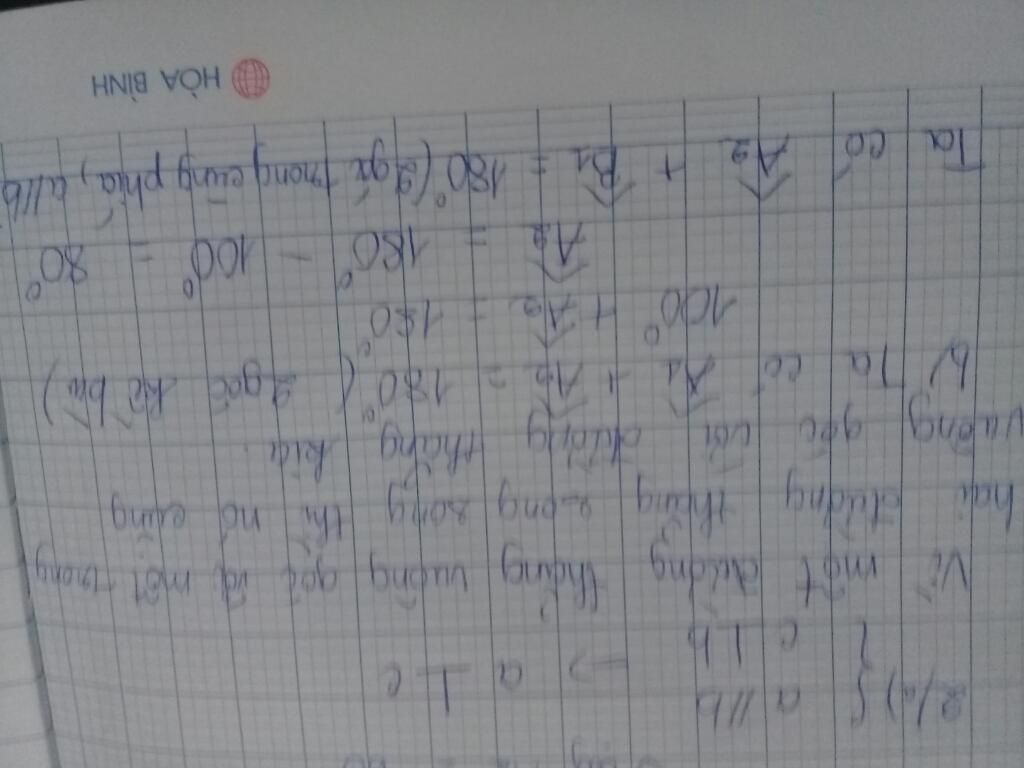 2/a) { a // b
c ⊥ b → a ⊥ c
Vì một đường thẳng vuông góc với một trong
hai đường thẳng song song thì nó cũng
vuông góc với đường thẳng kia.
b) Ta có A1 + A2 = 180° (2 góc kề bù)
100° + A2 = 180°
A2 = 180° - 100° = 80°
Ta có A2 + B1 = 180° (2 góc trong cùng phía, a//b
HÒA BÌNH